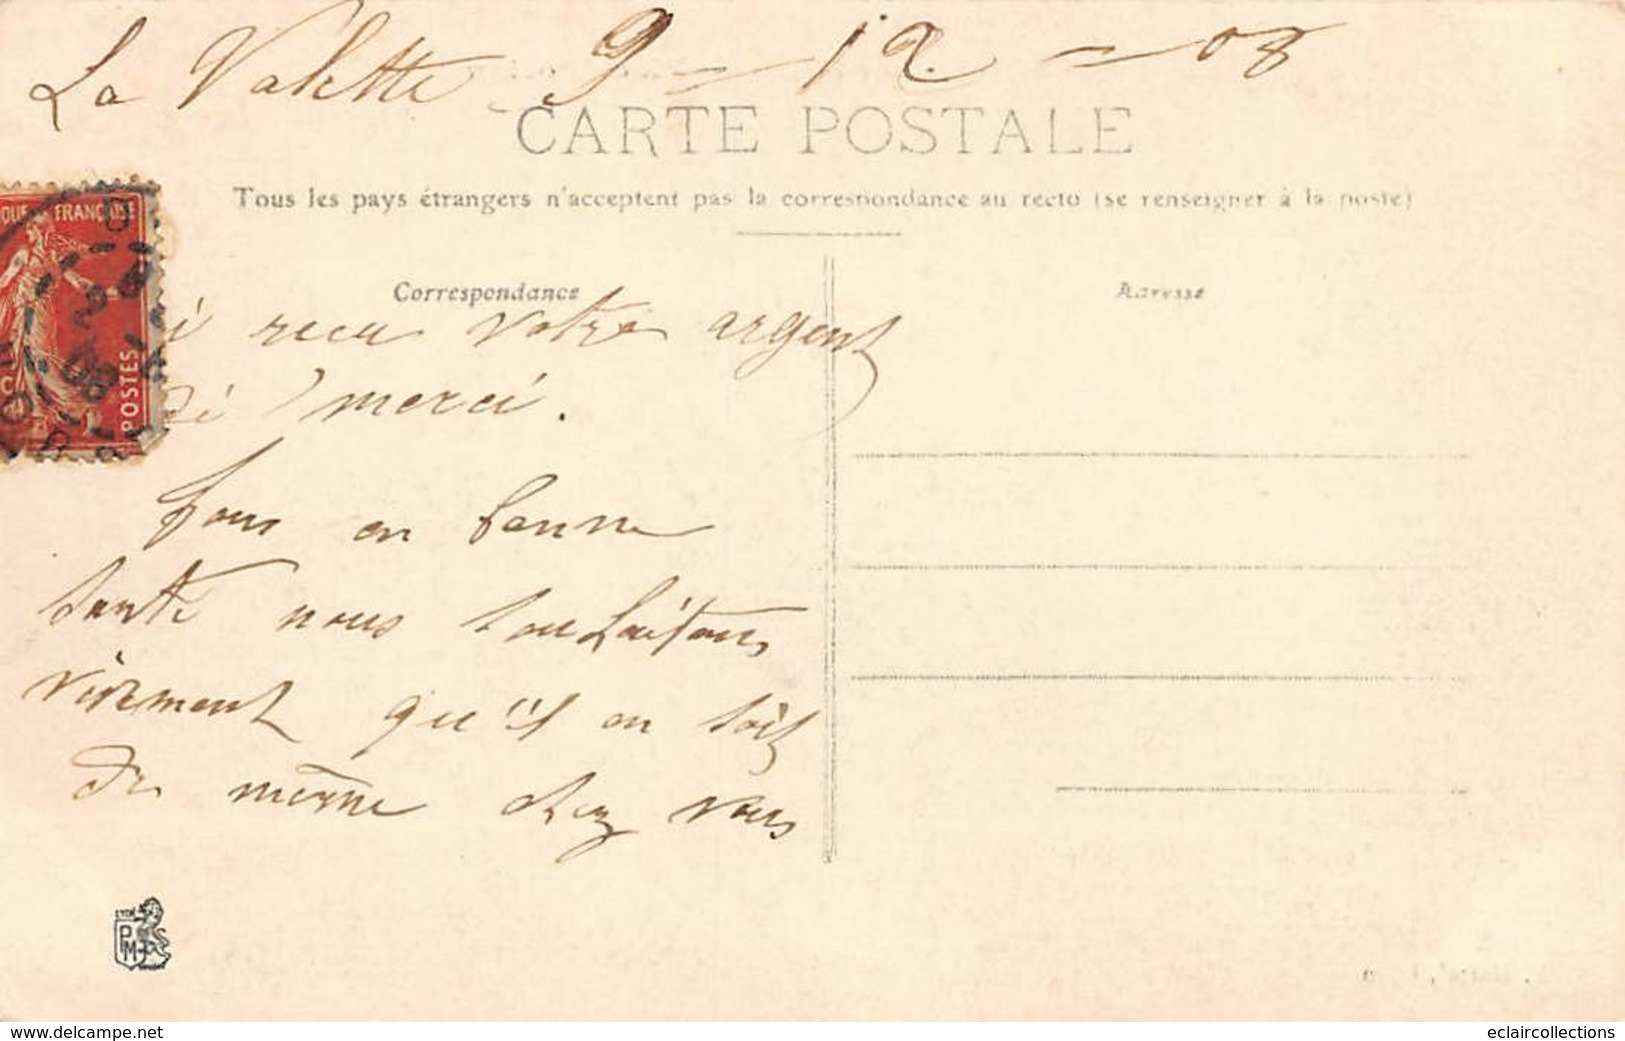 La Valette 9 - 12 - 08
CARTE POSTALE
Tous les pays étrangers n'acceptent pas la correspondance au recto (se renseigner à la poste)
Correspondance
Adresse
QUE FRANÇAISE
POSTES
i recu votre argent
di merci.
Tous en bonne
santé nous souhaitons
vivement qu'il en soit
de même chez vous
LYON
PM
www.delcampe.net
eclaircollections